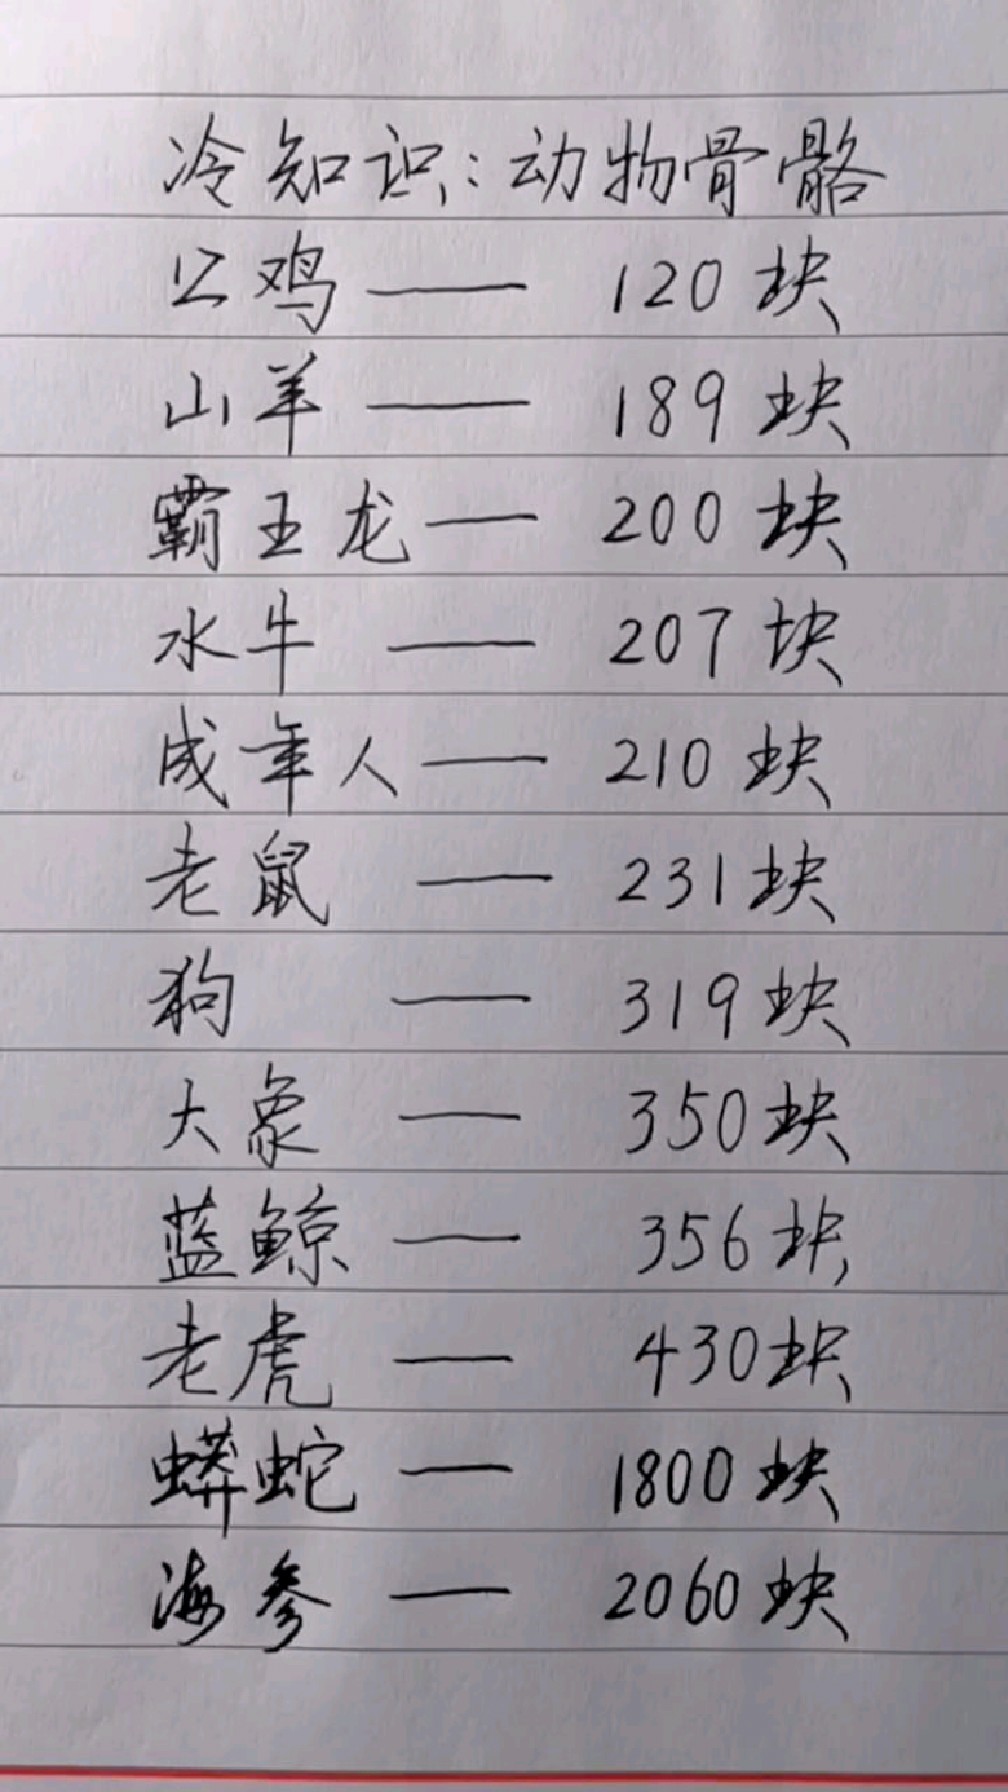 冷知识:动物骨骼
公鸡—— 120块
山羊—— 189块
霸王龙— 200块
水牛—— 207块
成年人— 210块
老鼠 — 231块
狗 — 319块
大象 — 350块
蓝鲸— 356块
老虎 — 430块
蟒蛇 — 1800块
海参 — 2060块